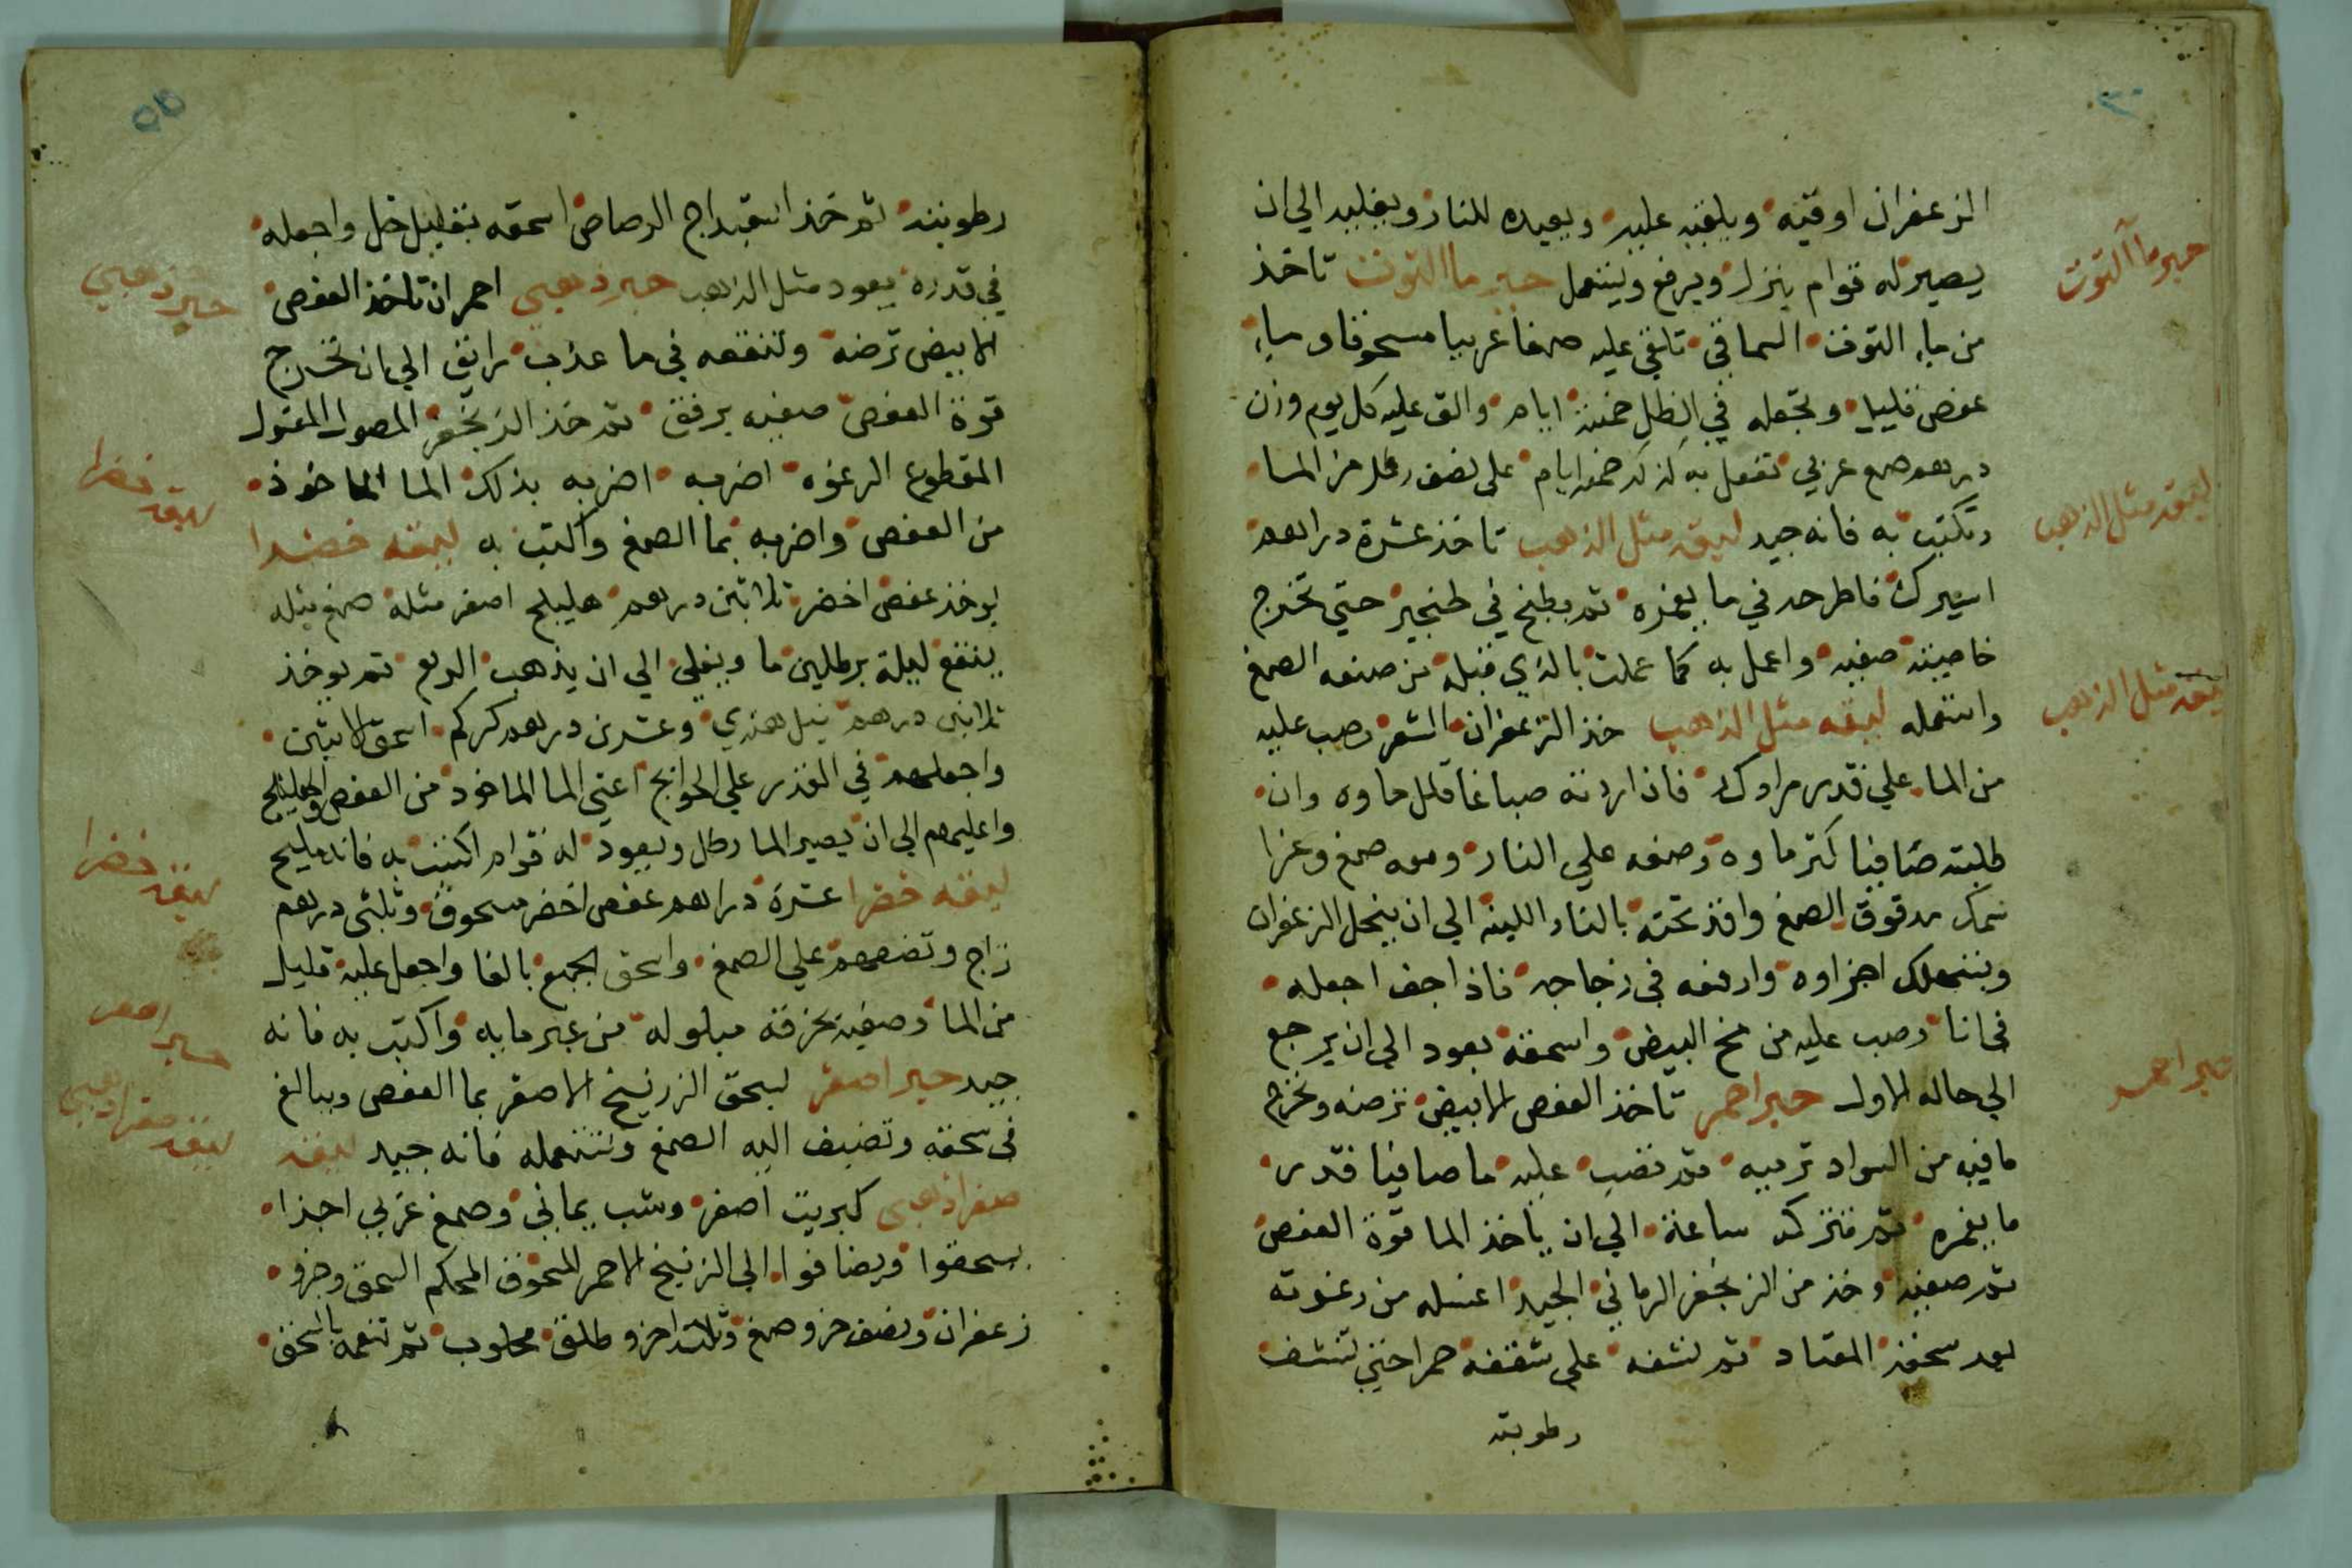 ٣٠
الزعفران اوقيه ويلقيه عليه ويعيده للنار ويغليه الي ان
يصير له قوام ينزل ويرفع ويستعمل حبر ما التوت تاخذ
حبر ما آلتوت
من ماء التوت السماقي تلقي عليه صمغا عربيا مسحوقا و ماء
عفص قليلا وتجعله في الظل خمسة ايام والق عليه كل يوم وزن
درهم صمغ عربي تفعل به كذلك خمسه ايام على نصف رطل من الما
وتكتب به فانه جيد ليقه مثل الذهب تاخذ عشرة دراهم
ليقه مثل الذهب
اسبرك فاطرحه في ما يغمره ثم يطبخ في طنجير حتي تخرج
خاصيته صفيه واعمل به كما عملت بالذي قبله من صنعه الصمغ
واستعمله ليقه مثل الذهب خذ الزعفران الشعر وصب عليه
ليقه مثل الذهب
من الما علي قدر مرادك فاذا اردته صباغا قلل ماوه وان
طلبته صافيا كثر ماوه وضعه علي النار ومعه صمغ وغرا
سمك مدقوق الصمغ واقد تحته بالنار اللينه الي ان ينحل الزعفران
وينهلك اجزاوه وارفعه في زجاجه فاذا جف اجعله
في انا وصب عليه من مح البيض واسحقه يعود الي ان يرجع
الي حاله الاول حبر احمر تاخذ العفص الابيض ترضه وتخرج
حبر احمر
ما فيه من السواد ترميه ثم تصب عليه ما صافيا قدر
ما يغمره ثم تتركه ساعة الي ان ياخذ الما قوة العفص
ثم صفيه وخذ من الزنجفر الرماني الجيد اغسله من رغوته
بعد سحقه المعتاد ثم نشفه على شقفه حمرا حتي تنشف
رطوبته
رطوبته ثم خذ اسقيداج الرصاص اسحقه بقليل خل واجعله
في قدره يعود مثل الذهب حبر ذهبي احمر ان تاخذ العفص
حبر ذهبي
الابيض ترضه وتنقعه في ما عذب رايق الي ان تخرج
قوة العفص صفيه برفق ثم خذ الزنجفر المصول المغسول
المقطوع الرغوه اضربه اضربه بذلك الما الماخوذ
ليقه خضرا
من العفص واضربه بما الصمغ واكتب به ليقه خضرا
يوخذ عفص اخضر ثلاثين درهم هليلج اصفر مثله صمغ مثله
ينقع ليلة برطلين ما ويغلي الي ان يذهب الربع ثم يوخذ
ثلاثين درهم نيل هندي وعشرين درهم كركم اسحق الاثنين
واجعلهم في القدر علي الحوايج اعني الما الماخوذ من العفص والهليلج
واغليهم الي ان يصير الما رطل ويعود له قوام اكتب به فانه مليح
ليقه خضرا عشرة دراهم عفص اخضر مسحوق وثلثي درهم
ليقه خضرا
زاج وتضعهم علي الصمغ واسحق الجميع بالغا واجعل عليه قليل
من الما وصفيه بخرقه مبلوله من غير ما به واكتب به فانه
جيد حبر اصفر يسحق الزرنيخ الاصفر بما العفص ويبالغ
حبر اصفر
في سحقه وتضيف اليه الصمغ وتستعمله فانه جيد ليقه
ليقه صفرا ذهبي
صفرا ذهبي كبريت اصفر وشب يماني وصمغ عربي اجزا
يسحقوا ويضافوا الي الزرنيخ الاحمر المسحوق المحكم السحق وجزو
زعفران ونصف جزو صمغ وثلث اجزو طلق محلوب ثم تنعمه بالسحق